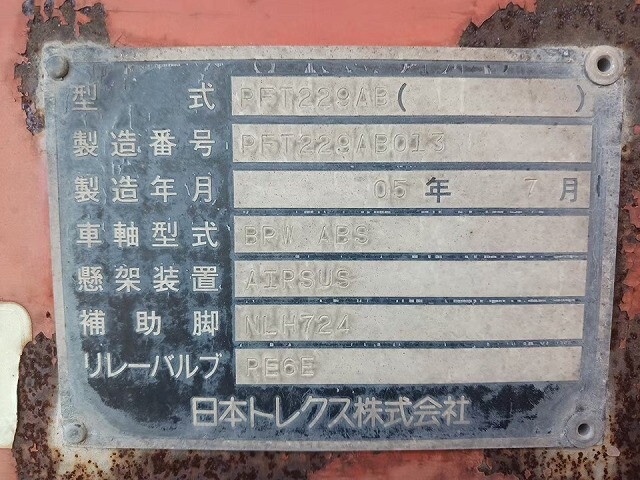 型式 PFT229AB( )
製造番号 PFT229AB013
製造年月 05年 7月
車軸型式 BPW ABS
懸架装置 AIRSUS
補助脚 NLH724
リレーバルブ RE6E
日本トレクス株式会社